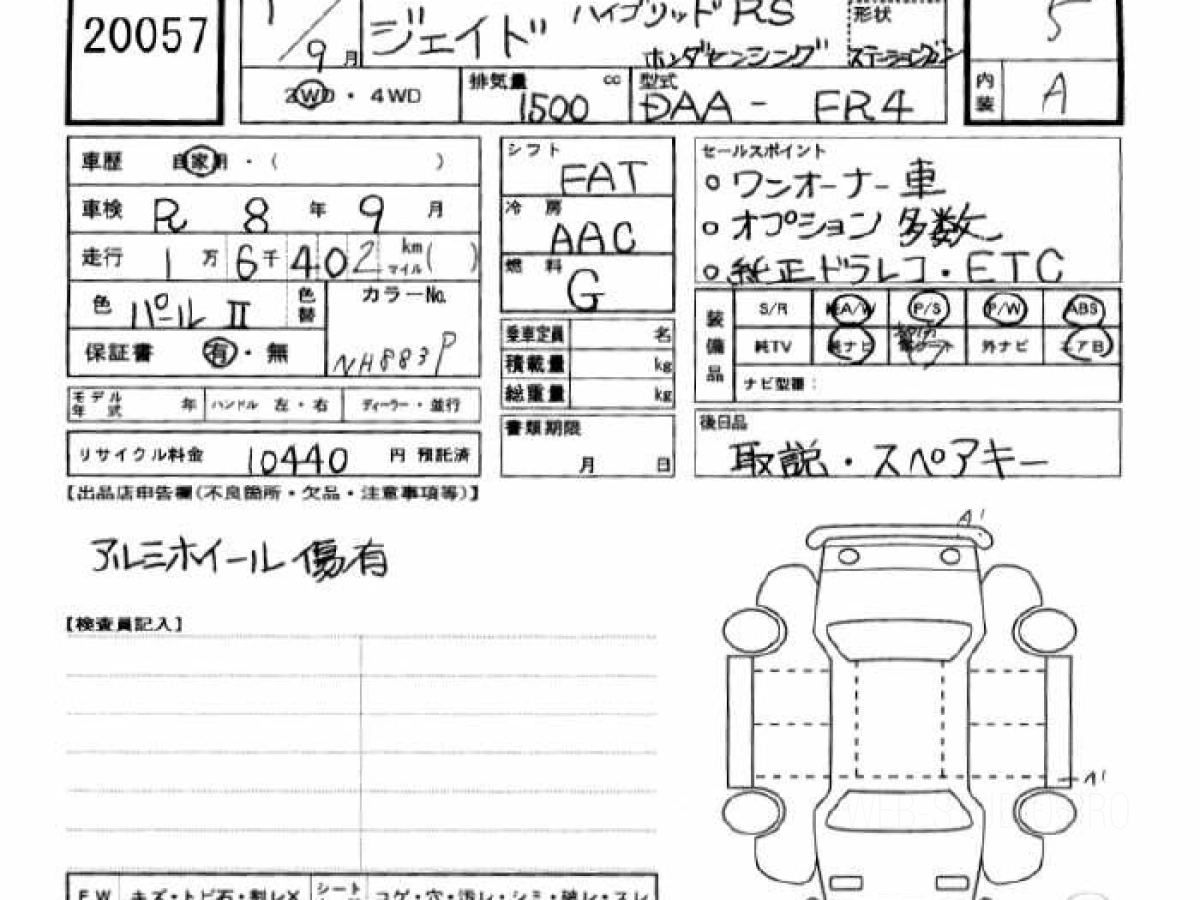 20057
1/9月
ジェイド ハイブリッドRS ホンダセンシング
形状 ステーションワゴン
5
2WD・4WD
排気量 1500 cc
型式 DAA - FR4
内装 A
車歴 自家用・( )
車検 R 8 年 9 月
走行 1 万 6 千 402 km マイル( )
色 パールⅡ 色替
カラーNo. NH883P
保証書 有・無
モデル年式 年 ハンドル 左・右 ディーラー・並行
リサイクル料金 10440 円 預託済
シフト FAT
冷房 AAC
燃料 G
乗車定員 名
積載量 kg
総重量 kg
書類期限 月 日
セールスポイント
○ワンオーナー車
○オプション多数
○純正ドラレコ・ETC
装備品 S/R 純A/W P/S P/W ABS
純TV 純ナビ 外ナビ エアB
ナビ型番:
後日品
取説・スペアキー
【出品店申告欄(不良箇所・欠品・注意事項等)】
アルミホイール傷有
【検査員記入】
A'
A'
FW キズ・トビ石・割レX シート コゲ・穴・汚レ・シミ・破レ・スレ